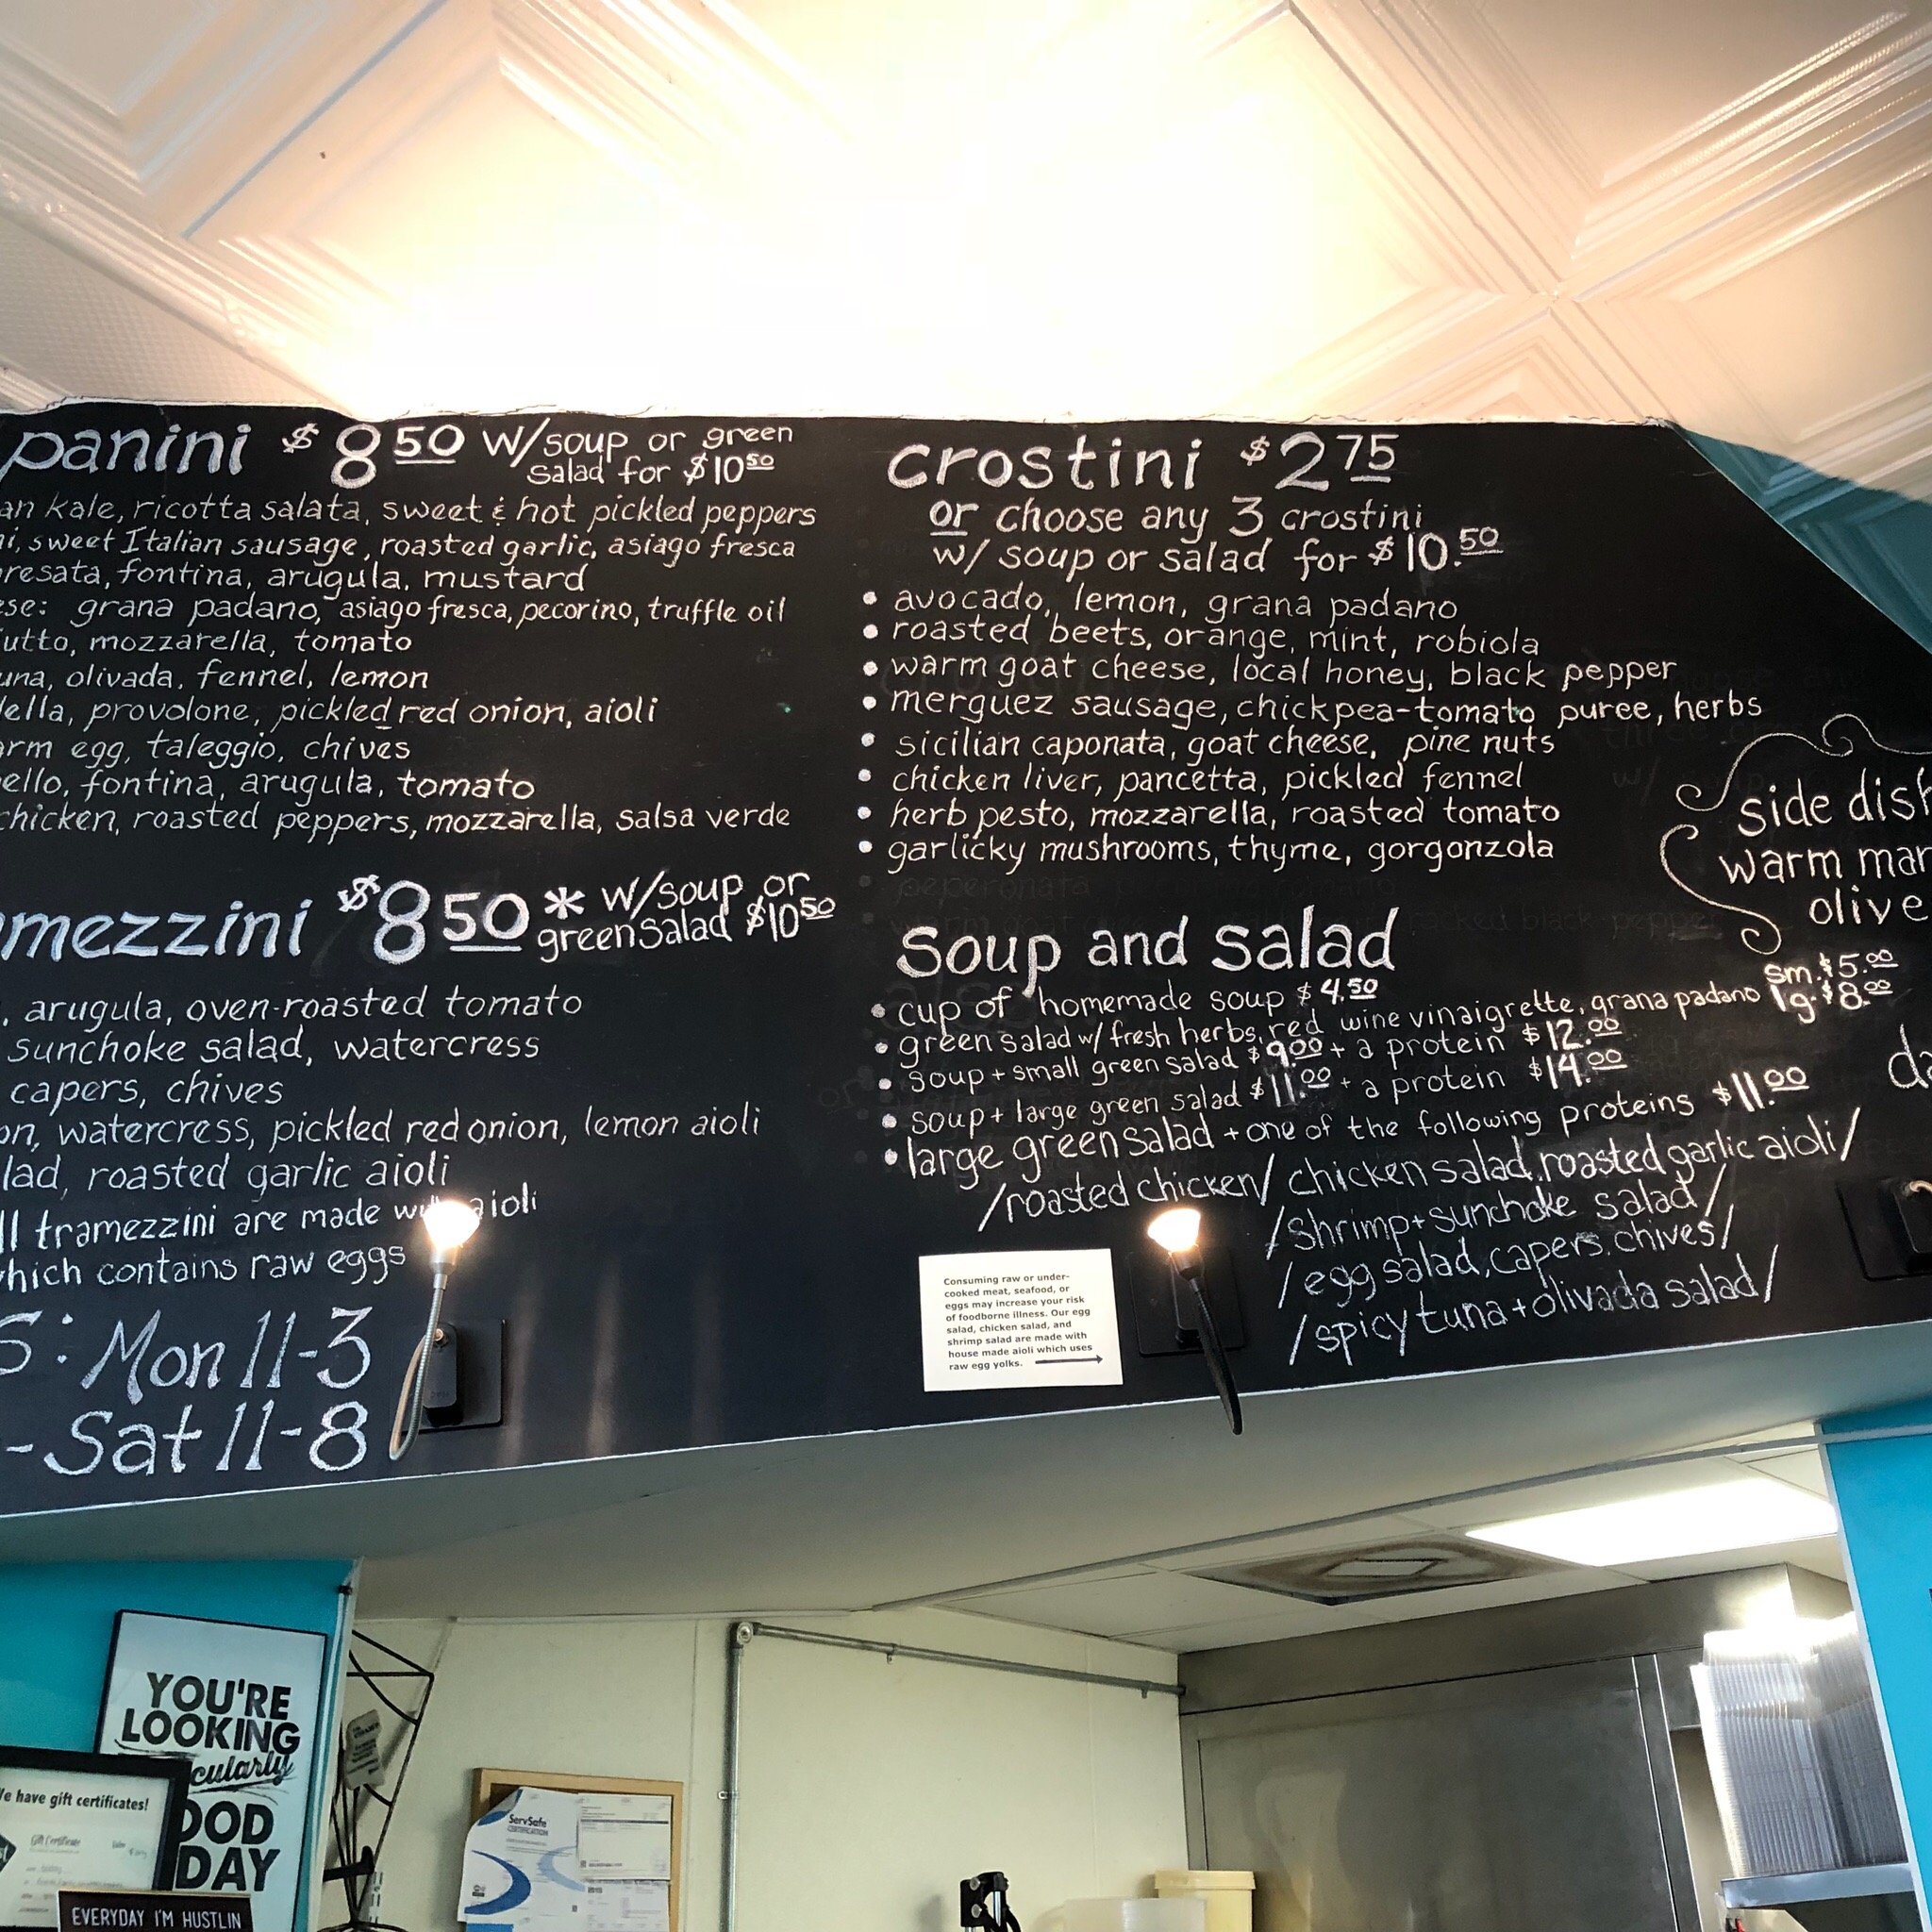 panini $8.50 w/soup or green
salad for $10.50
kale, ricotta salata, sweet & hot pickled peppers
sweet Italian sausage, roasted garlic, asiago fresca
fontina, arugula, mustard
grana padano, asiago fresca, pecorino, truffle oil
mozzarella, tomato
olivada, fennel, lemon
provolone, pickled red onion, aioli
egg, taleggio, chives
fontina, arugula, tomato
chicken, roasted peppers, mozzarella, salsa verde
mezzini $8.50 * w/soup or
green salad $10.50
, arugula, oven-roasted tomato
sunchoke salad, watercress
capers, chives
on, watercress, pickled red onion, lemon aioli
lad, roasted garlic aioli
ll tramezzini are made aioli
which contains raw eggs
S: Mon 11-3
-Sat 11-8
crostini $2.75
or choose any 3 crostini
w/ soup or salad for $10.50
• avocado, lemon, grana padano
• roasted beets, orange, mint, robiola
• warm goat cheese, local honey, black pepper
• merguez sausage, chickpea-tomato puree, herbs
• sicilian caponata, goat cheese, pine nuts
• chicken liver, pancetta, pickled fennel
• herb pesto, mozzarella, roasted tomato
• garlicky mushrooms, thyme, gorgonzola
soup and salad
• cup of homemade soup $4.50
• green salad w/ fresh herbs, red wine vinaigrette, grana padano sm. $5.00
lg. $8.00
• soup + small green salad $9.00 + a protein $12.00
• soup + large green salad $11.00 + a protein $14.00
• large green salad + one of the following proteins $11.00
/roasted chicken/ chicken salad, roasted garlic aioli/
/shrimp + sunchoke salad/
/egg salad, capers, chives/
/spicy tuna + olivada salad/
side dish
warm mar
olive
da
Consuming raw or under-
cooked meat, seafood, or
eggs may increase your risk
of foodborne illness. Our egg
salad, chicken salad, and
shrimp salad are made with
house made aioli which uses
raw egg yolks.
YOU'RE
LOOKING
cularly
OOD
DAY
have gift certificates!
Gift Certificate
EVERYDAY I'M HUSTLIN
ServSafe
CERTIFICATION